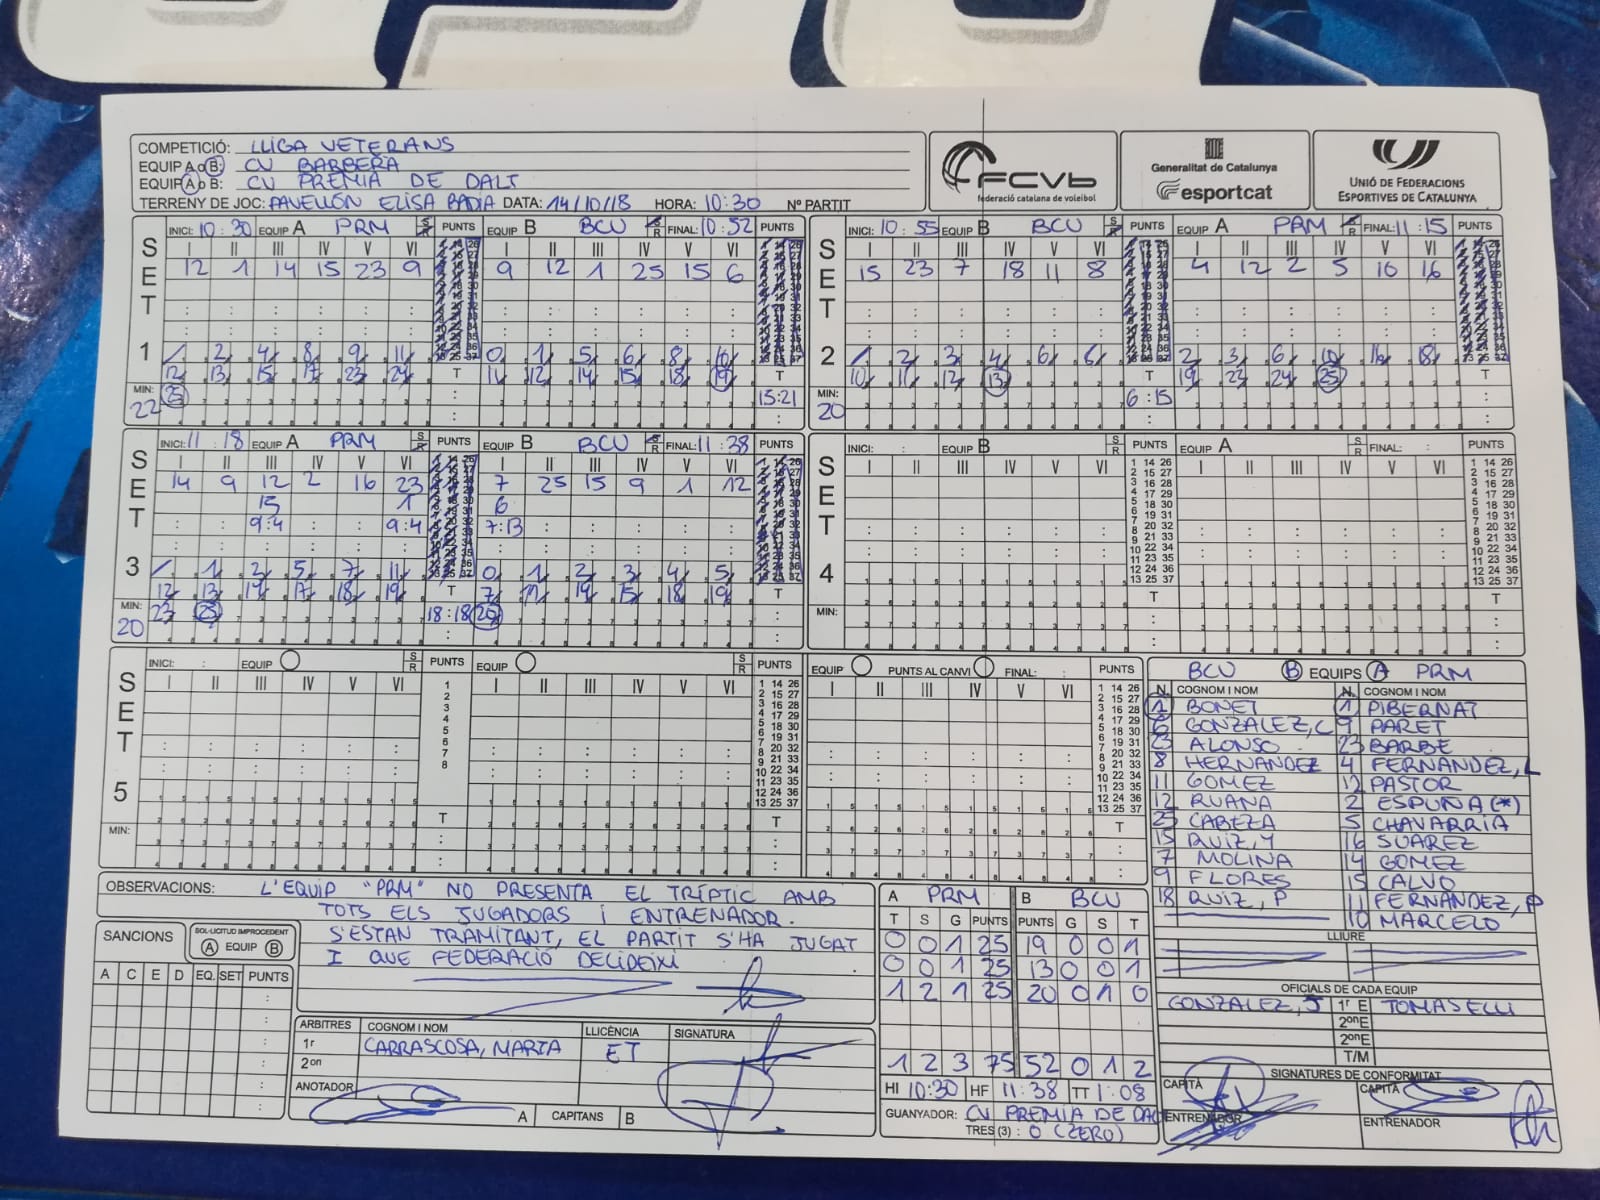 COMPETICIÓ: LLIGA VETERANS
EQUIP A o B: CV BARBERA
EQUIP A o B: CV PREMIA DE DALT
TERRENY DE JOC: PAVELLÓN ELISA BADIA DATA: 14/10/18 HORA: 10:30 Nº PARTIT
FCVb
federació catalana de voleibol
Generalitat de Catalunya
esportcat
UNIÓ DE FEDERACIONS
ESPORTIVES DE CATALUNYA
SET 1
INICI: 10:30 EQUIP A PRM S R PUNTS EQUIP B BCU S R FINAL: 10:52 PUNTS
I II III IV V VI I II III IV V VI
12 1 14 15 23 9 9 12 1 25 15 6
1 2 4 8 9 11 0 1 5 6 8 10
12 13 15 17 23 24 T 11 12 14 15 18 19 T
MIN: 22 25 15:21
SET 2
INICI: 10:55 EQUIP B BCU S R PUNTS EQUIP A PRM S R FINAL: 11:15 PUNTS
I II III IV V VI I II III IV V VI
15 23 7 18 11 8 4 12 2 5 10 16
1 2 3 4 6 6 2 3 6 10 16 18
10 11 12 13 T 19 23 24 25 T
MIN: 20 6:15
SET 3
INICI: 11:18 EQUIP A PRM S R PUNTS EQUIP B BCU S R FINAL: 11:38 PUNTS
I II III IV V VI I II III IV V VI
14 9 12 2 16 23 7 25 15 9 1 12
15 1 6
9:4 9:4 7:13
1 2 5 7 11 0 1 2 3 4 5
12 13 19 17 18 19 T 7 11 14 15 18 19 T
MIN: 20 23 25 18:18 20
SET 4
EQUIP B S R PUNTS EQUIP A S R FINAL: : PUNTS
I II III IV V VI I II III IV V VI
1 14 26
2 15 27
3 16 28
4 17 29
5 18 30
6 19 31
7 20 32
8 21 33
9 22 34
10 23 35
11 24 36
12 25 37
T
MIN:
SET 5
INICI: : EQUIP S R PUNTS EQUIP S R PUNTS EQUIP PUNTS AL CANVI FINAL: : PUNTS
I II III IV V VI I II III IV V VI I II III IV V VI
1
2
3
4
5
6
7
8
T
MIN:
BCU B EQUIPS A PRM
N. COGNOM I NOM N. COGNOM I NOM
1 BONET 1 PIBERNAT
6 GONZALEZ, C 9 PARET
23 ALONSO 23 BARBE
8 HERNANDEZ 4 FERNANDEZ, L
11 GOMEZ 12 PASTOR
12 RUANA 2 ESPUÑA (*)
25 CABEZA 5 CHAVARRIA
15 RUIZ, Y 16 SUAREZ
7 MOLINA 14 GOMEZ
9 FLORES 15 CALVO
18 RUIZ, P 11 FERNANDEZ, P
10 MARCELO
LLIURE
OFICIALS DE CADA EQUIP
GONZALEZ, J 1r E TOMASELLI
2on E
2on E
T/M
SIGNATURES DE CONFORMITAT
CAPITÀ CAPITÀ
ENTRENADOR ENTRENADOR
OBSERVACIONS: L'EQUIP "PRM" NO PRESENTA EL TRÍPTIC AMB
TOTS ELS JUGADORS I ENTRENADOR.
S'ESTAN TRAMITANT, EL PARTIT S'HA JUGAT
I QUE FEDERACIÓ DECIDEIXI
SANCIONS
SOL·LICITUD IMPROCEDENT
A EQUIP B
A C E D EQ. SET PUNTS
ARBITRES COGNOM I NOM LLICÈNCIA SIGNATURA
1r CARRASCOSA, MARTA ET
2on
ANOTADOR
A CAPITANS B
A PRM B BCU
T S G PUNTS PUNTS G S T
0 0 1 25 19 0 0 1
0 0 1 25 13 0 0 1
1 2 1 25 20 0 1 0
1 2 3 75 52 0 1 2
HI 10:30 HF 11:38 TT 1:08
GUANYADOR: CV PREMIA DE DAL
TRES (3): 0 (ZERO)